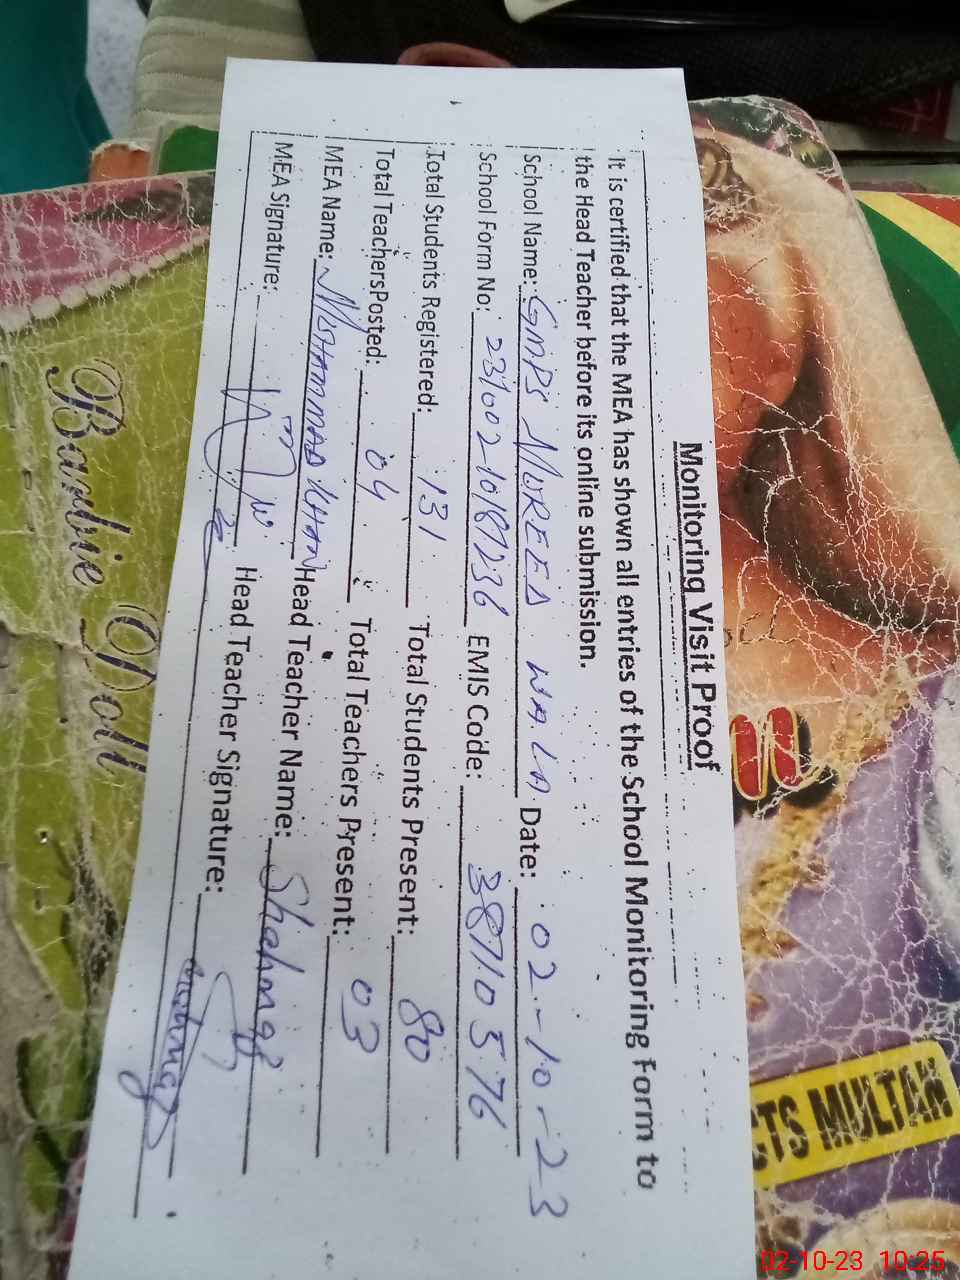 Monitoring Visit Proof
It is certified that the MEA has shown all entries of the School Monitoring Form to
the Head Teacher before its online submission.
School Name: GMPS MOREEA WALA Date: 02-10-23
School Form No: 231002-1018236 EMIS Code: 38710576
Total Students Registered: 131 Total Students Present: 80
Total TeachersPosted: 04 Total Teachers Present: 03
MEA Name: MUHAMMAD KHAN Head Teacher Name: Shahnaz
MEA Signature: Head Teacher Signature:
Barbie Doll
CTS MULTAN
02-10-23 10:25